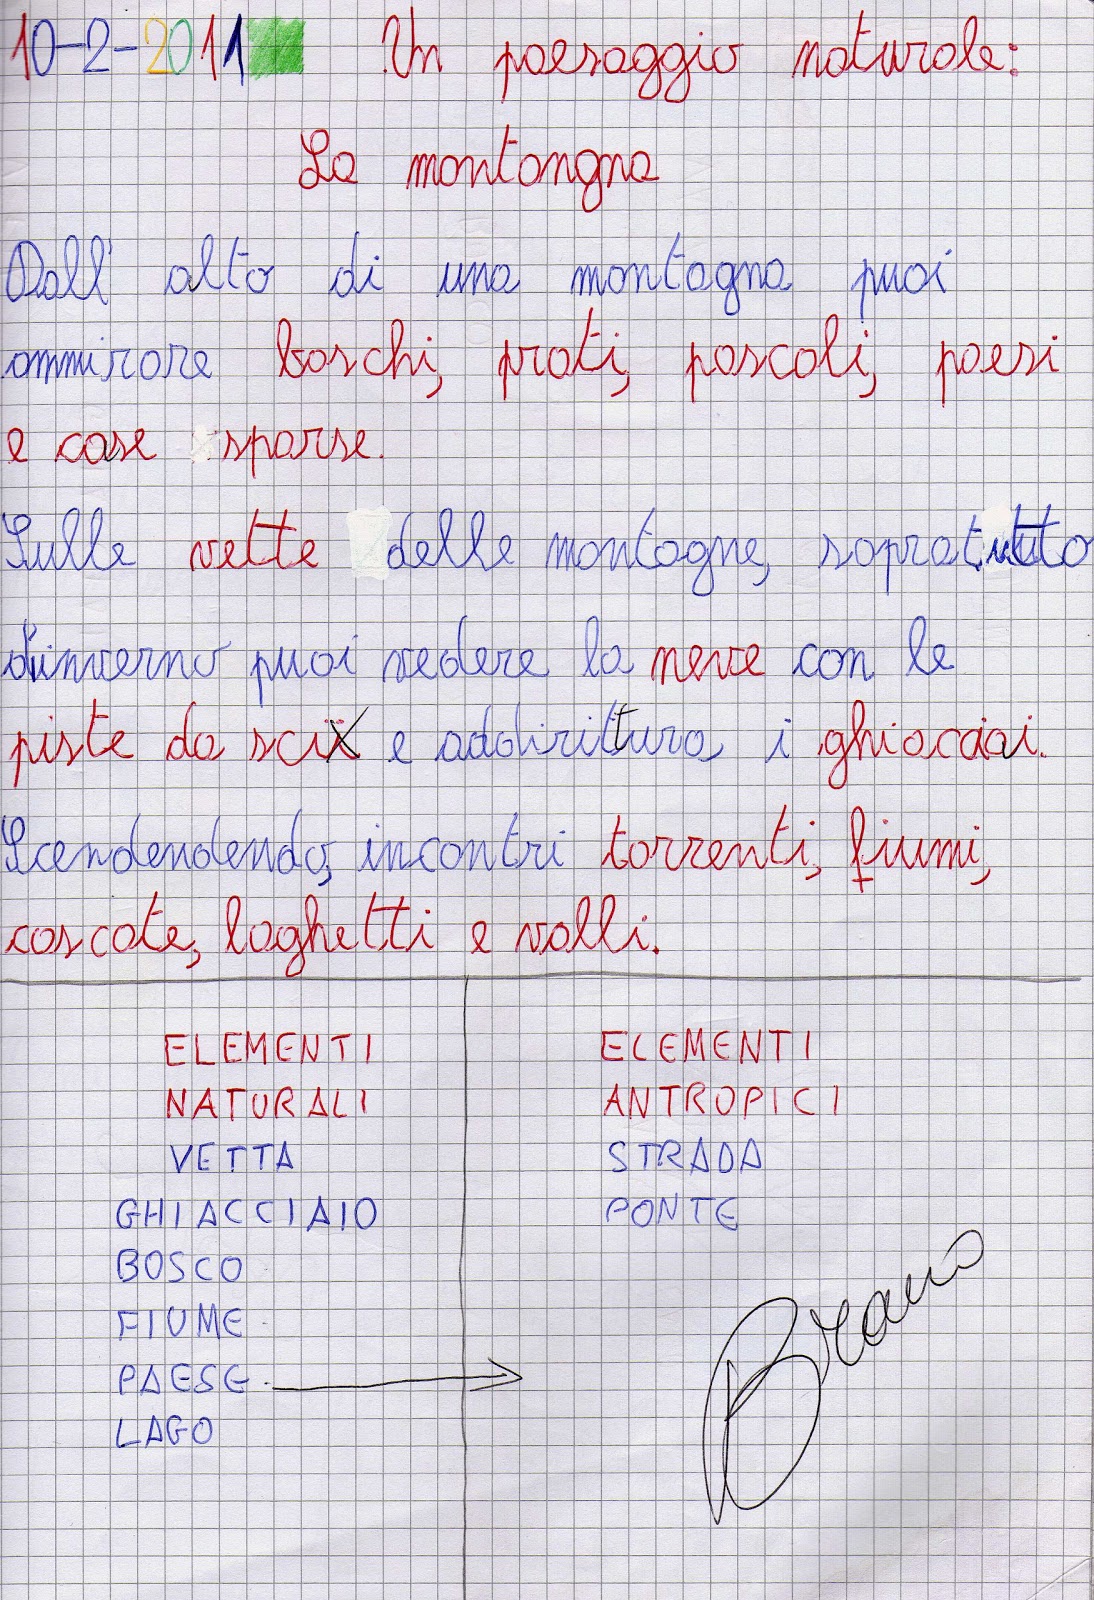 10-2-2011 Un paesaggio naturale:
La montongna
Dall' alto di una montagna puoi
ammirare boschi, prati, pascoli, paesi
e case sparse.
Sulle vette delle montagne, sopratutto
d'inverno puoi vedere la neve con le
piste da sci e addirittura i ghiacciai.
Scendendendo, incontri torrenti, fiumi,
cascate, laghetti e valli.
ELEMENTI NATURALI
VETTA
GHIACCIAIO
BOSCO
FIUME
PAESE
LAGO
ELEMENTI ANTROPICI
STRADA
PONTE
Bravo